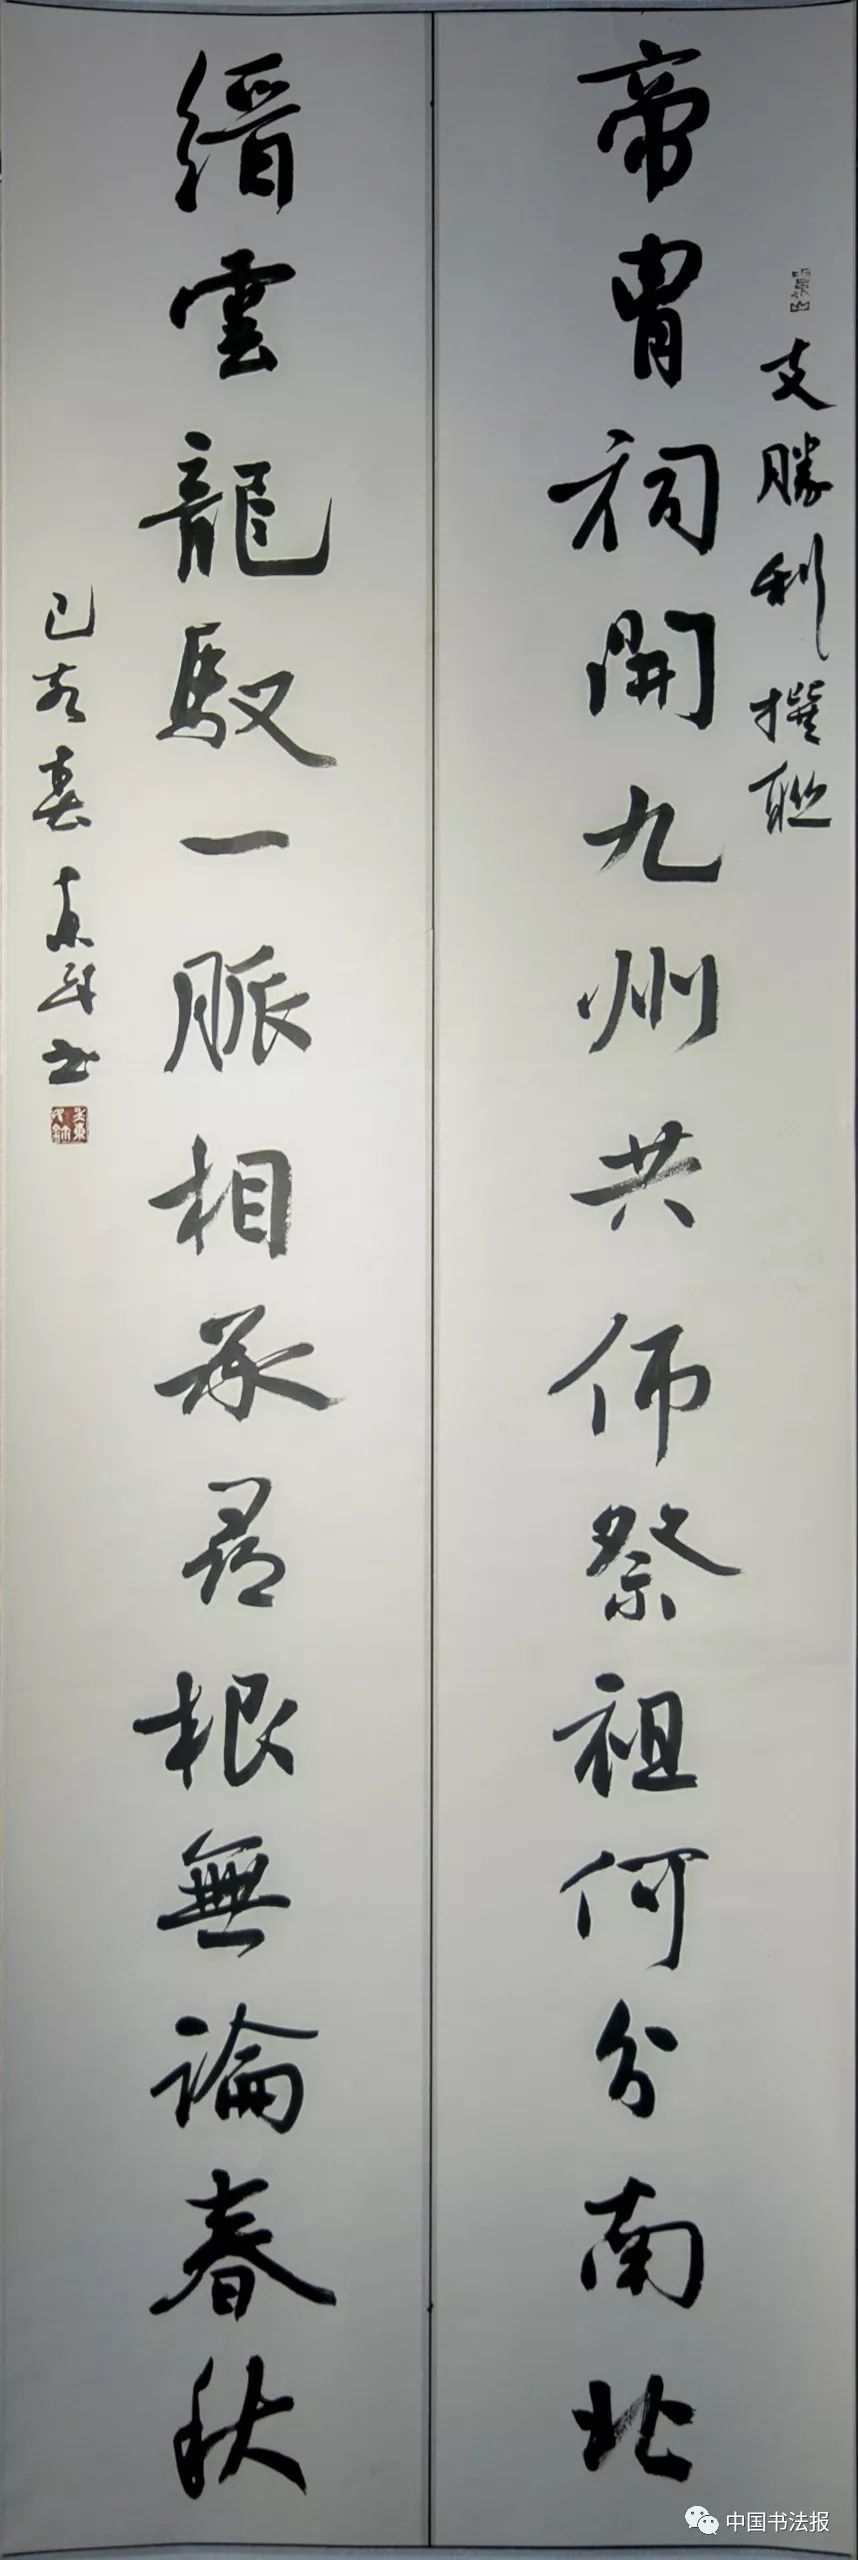 支勝利撰聯
帝胄祠開九州共师祭祖何分南北
縉雲龍馭一脈相承尋根無論春秋
己亥春 书
中国书法报